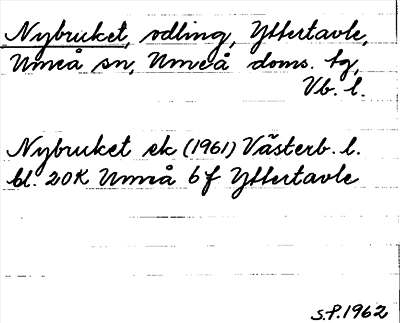 Nybruket, odling, Yttertavle,
Umeå sn, Umeå doms. tg,
Vb. l.
Nybruket ek (1961) Västerb. l.
bl. 20K Umeå 6f Yttertavle
S.P. 1962